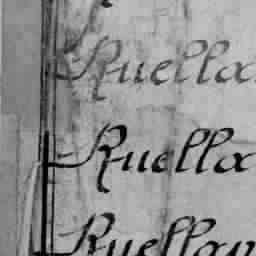 Ruella
Ruella
Ruellan